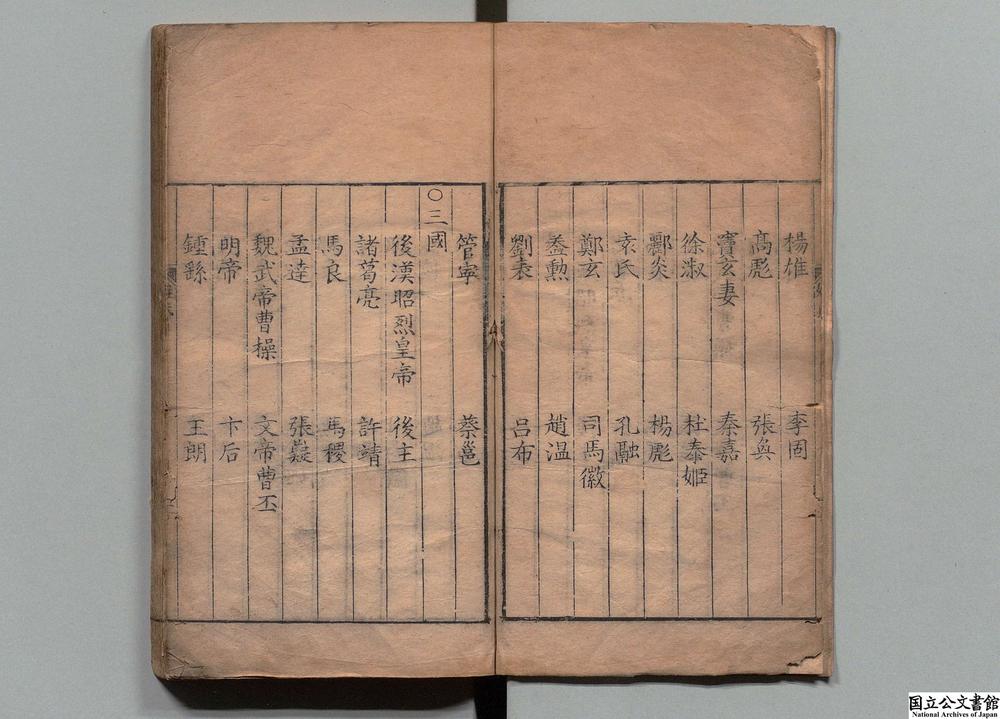 楊雄 李固
高彪 張奐
竇玄妻 秦嘉
徐淑 杜泰姬
酈炎 楊彪
袁氏 孔融
鄭玄 司馬徽
蓋勲 趙溫
劉表 呂布
管寧 蔡邕
○三國
後漢昭烈皇帝 後主
諸葛亮 許靖
馬良 馬稷
孟達 張嶷
魏武帝曹操 文帝曹丕
明帝 卞后
鍾繇 王朗
国立公文書館
National Archives of Japan